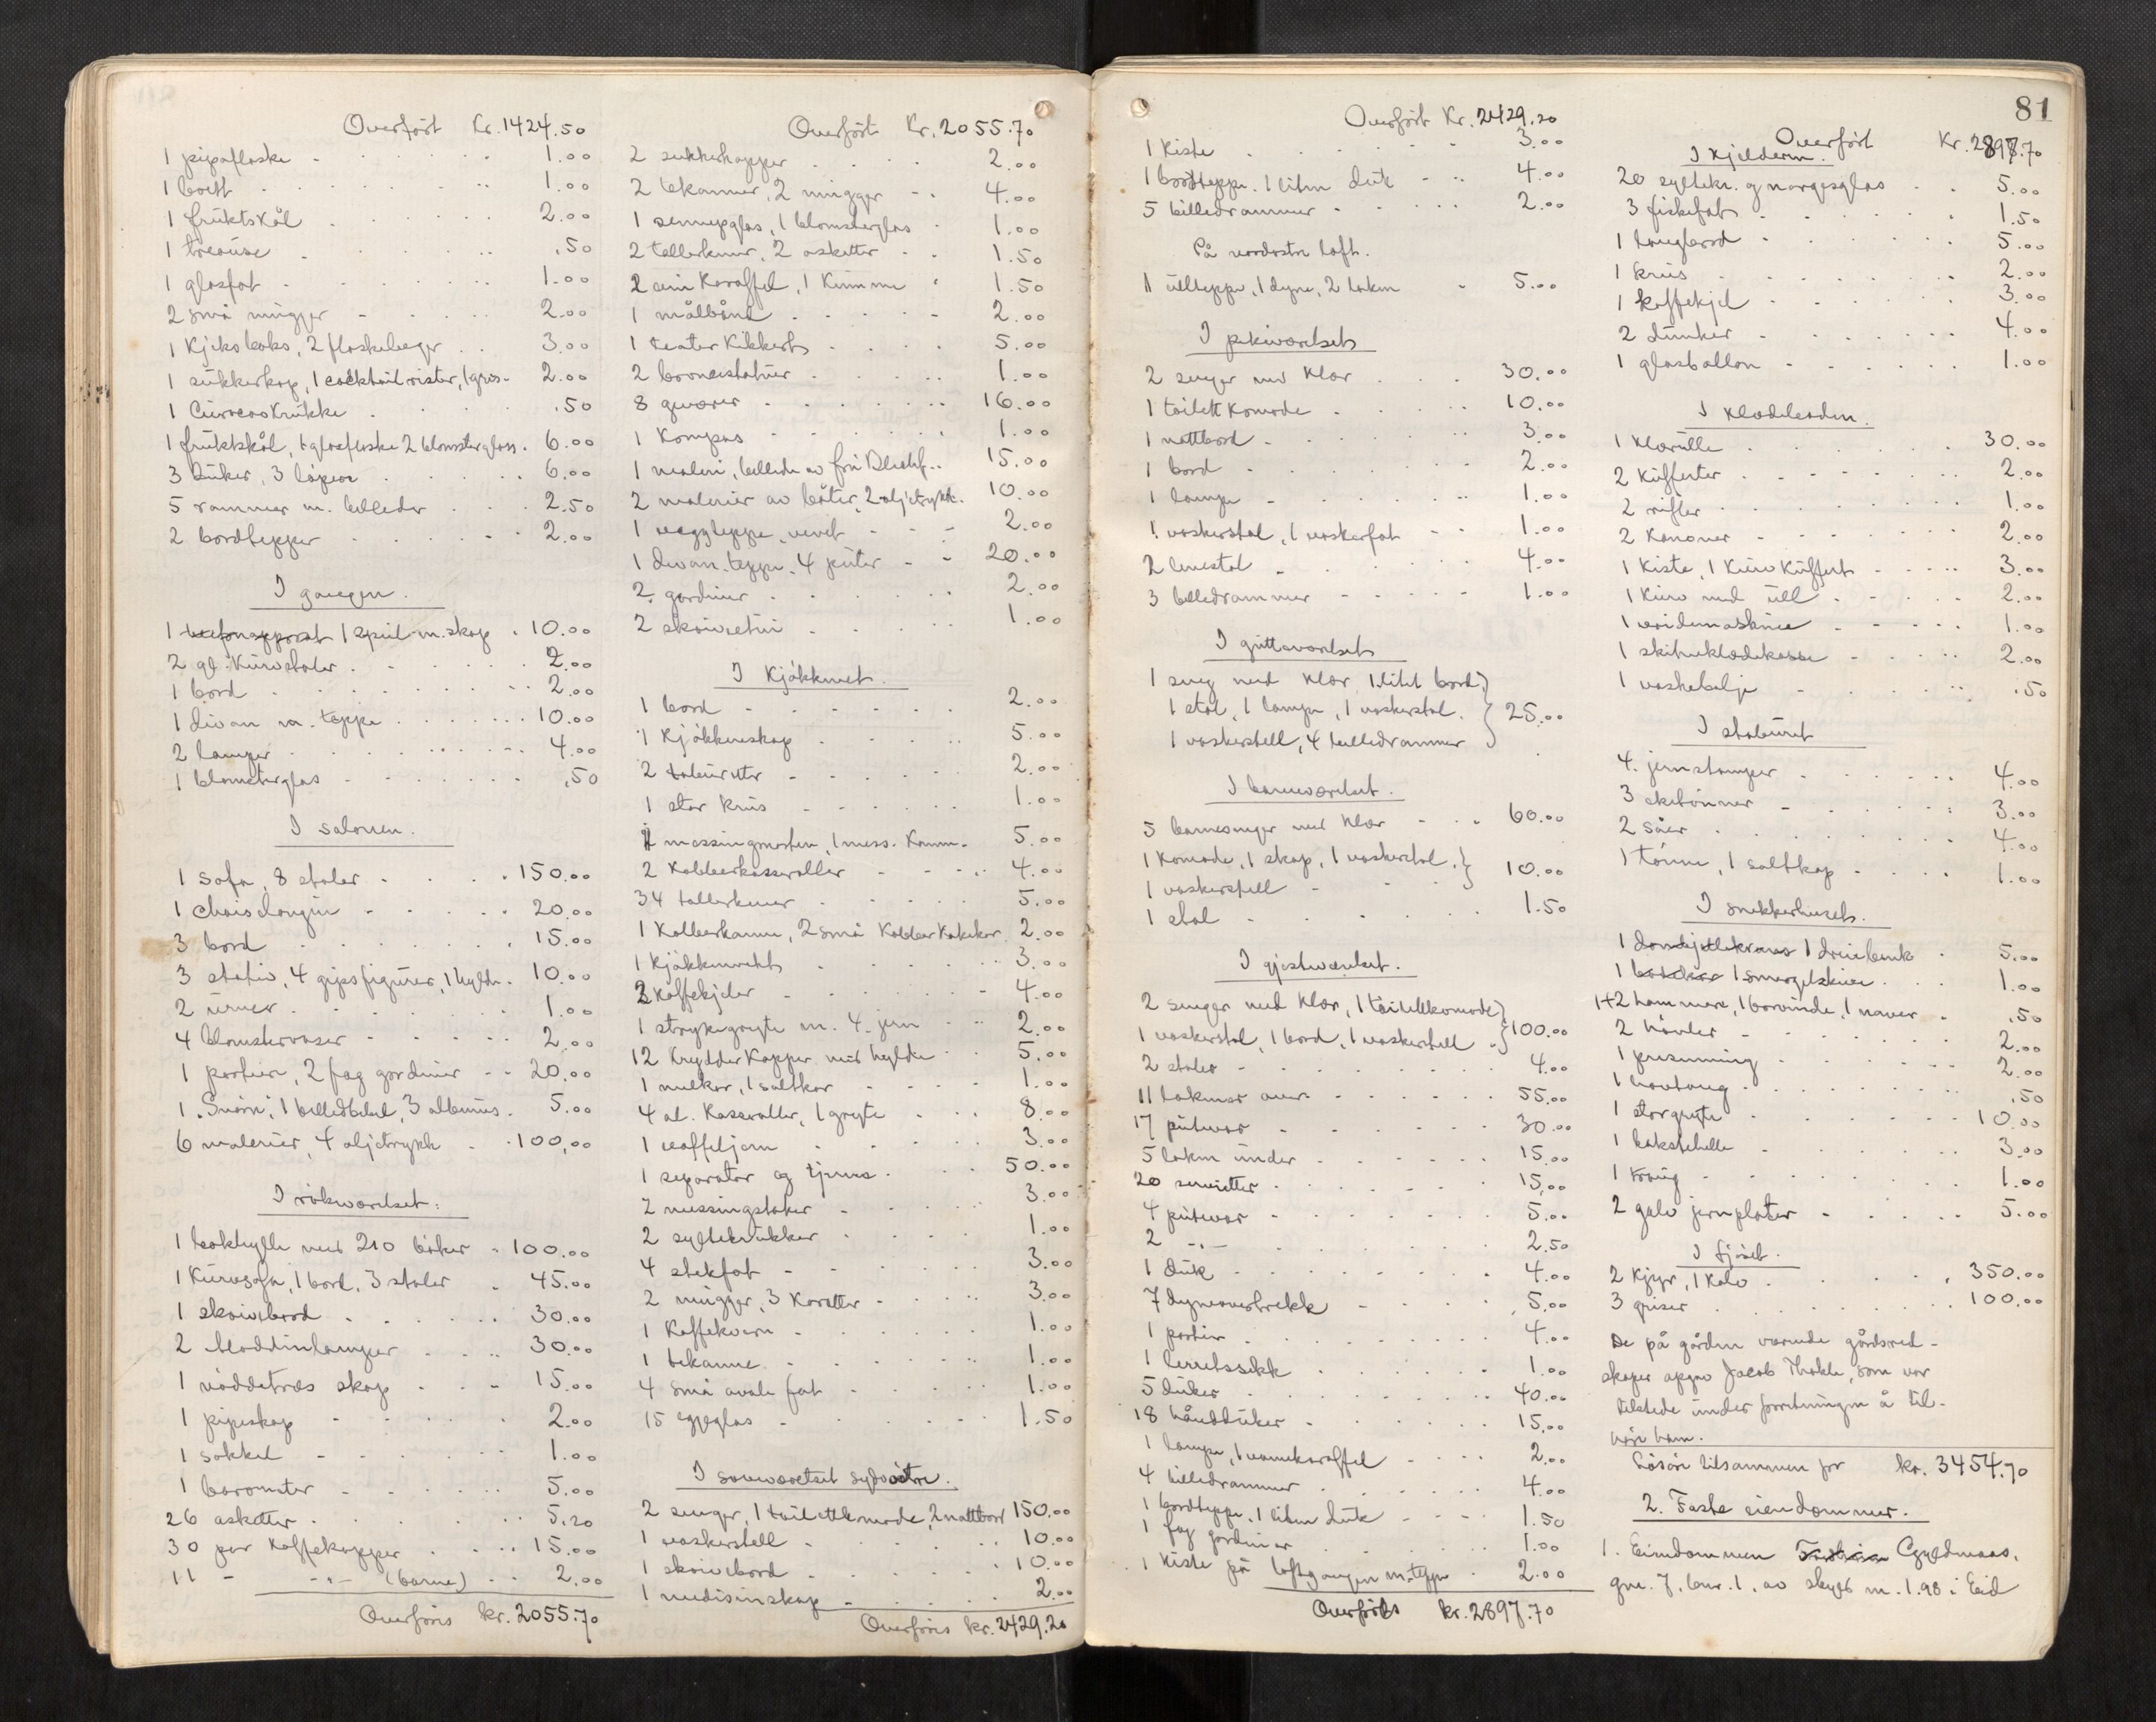 Overført Kr. 1424.50
1 pipaflaske 1.00
1 brett 1.00
1 fruktskål 2.00
1 .50
1 glasfat 1.00
2 små mugger 2.00
1 kjeksboks, 2 flaskebeger 3.00
1 sukkerkop, 1 cocktail rister, 1 gris 2.00
1 Curacaokrukke .50
1 fruktskål, 1 glasflaske 2 blomsterglass. 6.00
3 duker, 3 löpere 6.00
5 rammer m. billeder 2.50
2 bordtepper 2.00
I gangen.
1 1 speil m. skap 10.00
2 gl. Kurvstoler 2.00
1 bord 2.00
1 divan m. teppe 10.00
2 lamper 4.00
1 blomsterglas .50
I salonen.
1 sofa, 8 stoler 150.00
1 chaiselongue 20.00
3 bord 15.00
3 stativ, 4 gipsfigurer, 1 hylde 10.00
2 urner 1.00
4 blomstervaser 2.00
1 portier, 2 fag gardiner 20.00
1 , 1 billedbibel, 3 albums. 5.00
6 malerier, 4 oljetrykk 100.00
I rökeværelset.
1 bokhylle med 210 böker 100.00
1 Kurvsofa, 1 bord, 3 stoler 45.00
1 skrivebord 30.00
2 Aladdinlamper 30.00
1 nöddetræs skap 15.00
1 pipeskap 2.00
1 sokkel 1.00
1 barometer 5.00
26 asketter 5.20
30 par Kaffekopper 15.00
11 - -"- (barne) 2.00
Overföres kr. 2055.70
Overført Kr. 2055.70
2 sukkerkopper 2.00
2 tekanner, 2 mugger 4.00
1 sennepglas, 1 blomsterglas 1.00
2 tallerkner, 2 asketter 1.50
2 vin Karaffel, 1 Kumme 1.50
1 målbånd 2.00
1 teater Kikkert 5.00
2 broncestatuer 1.00
8 geværer 16.00
1 Kompas 1.00
1 maleri, billede av fru 15.00
2 malerier av båter, 2 oljetrykk. 10.00
1 veggteppe, vevet 2.00
1 divan. teppe. 4 puter 20.00
2 gardiner 2.00
2 skrivetui 1.00
I Kjökkenet.
1 bord 2.00
1 Kjökkenskap 5.00
2 taburetter 2.00
1 stor krus 1.00
1 messingmorter, 1 mess. Kanne 5.00
2 Kobberkasseroller 4.00
34 tallerkener 5.00
1 Kobberkanne, 2 små Kobber Kakekar 2.00
1 Kjökkenvekt 3.00
2 Kaffekjeler 4.00
1 strykegryte m. 4 jern 2.00
12 Krydder Kopper med hylde 5.00
1 melkar, 1 saltkar 1.00
4 al. Kasseroller, 1 gryte 8.00
1 vaffeljern 3.00
1 separator og tjerne 50.00
2 messingstaker 3.00
2 syltekrukker 1.00
4 stekfat 3.00
2 mugger, 3 Karafler 3.00
1 Kaffekvern 1.00
1 tekanne 1.00
4 små ovale fat 1.00
15 eggeglas 1.50
I soveværelset sydvöstre.
2 senger, 1 toilettkomode, 2 nattbord 150.00
1 vaskestell 10.00
1 skrivebord 10.00
1 medisinskap 2.00
Overföres kr. 2429.20
81
Overført Kr. 2429.20
1 Kiste 3.00
1 bordteppe. 1 liten duk 4.00
5 billedrammer 2.00
På nordöstre loft.
1 ullteppe, 1 dyne, 2 laken 5.00
I pikeværelset
2 senger med Klær 30.00
1 toilett Komode 10.00
1 nattbord 3.00
1 bord 2.00
1 lampe 1.00
1 vaskerstol, 1 vaskerfat 1.00
2 lenestol 4.00
3 billedrammer 1.00
I gutteværelset
1 seng med Klær 1 litet bord
1 stol, 1 lampe, 1 vaskerstol. 25.00
1 vaskerstell, 4 billedrammer
I barneværelset.
5 barnesenger med Klær 60.00
1 Komode, 1 skap, 1 vaskerstol. 10.00
1 vaskerstell
1 stol 1.50
I gjesteværelset.
2 senger med Klær, 1 toilettkomode
1 vaskerstol, 1 bord, 1 vaskerstell 100.00
2 stoler 4.00
11 lakener over 55.00
17 putevar 30.00
5 laken under 15.00
20 servietter 15.00
4 putevar 5.00
2 -"- 2.50
1 duk 4.00
7 dyneovertrekk 5.00
1 portier 4.00
1 lerretssekk 1.00
5 duker 40.00
18 håndduker 15.00
1 lampe, 1 vannkaraffel 2.00
4 billedrammer 4.00
1 bordteppe, 1 liten duk 1.50
1 fag gardiner 1.00
1 Kiste på loftgangen m. teppe 2.00
Overföres kr. 2897.70
Overført Kr. 2897.70
I Kjelderen.
20 syltekr. og norgesglas 5.00
3 fiskefat 1.50
1 langbord 5.00
1 krus 2.00
1 Kaffekjel 3.00
2 dunker 4.00
1 glasballon 1.00
I Klædeboden.
1 Klærulle 30.00
2 Kufferter 2.00
2 rifler 1.00
2 Kanoner 2.00
1 Kiste, 1 Kurv Kuffert 3.00
1 Kurv med ull 2.00
1 vridemaskine 1.00
1 skitneklædekasse 2.00
1 vaskebalje .50
I staburet
4 jernstamper 4.00
3 3.00
2 såer 4.00
1 tönne, 1 saltkop 1.00
I snekkerhuset.
1 1 dreiebenk 5.00
1 1 smergelskive 1.00
1+2 hammere, 1 borvinde, 1 naver .50
2 hövler 2.00
1 presenning 2.00
1 .50
1 storgryte 10.00
1 bakstehelle 3.00
1 1.00
2 galv jernplater 5.00
I fjöset.
2 Kjyr, 1 Kalv 350.00
3 griser 100.00
De på gården værende gårdsred-
skaper opgav Jacob , som var
tilstede under forretningen å til-
höre ham.
Lösöre tilsammen for kr. 3454.70
2. Faste eiendommer.
1. Eiendommen Gyldmaas,
gnr. 7, bnr. 1, av skyld m. 1.98 i Eid